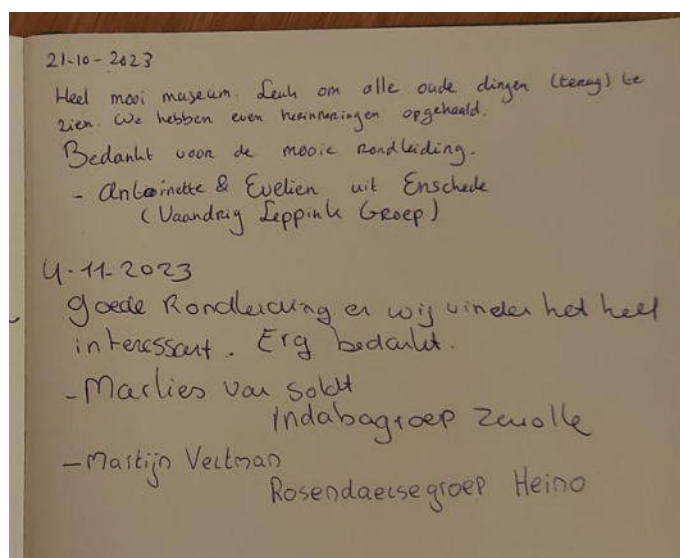 21-10-2023
Heel mooi museum. Leuk om alle oude dingen (terug) te
zien. We hebben even herinneringen opgehaald.
Bedankt voor de mooie rondleiding.
- Antoinette & Evelien uit Enschede
(Vaandrig Leppink Groep)
4-11-2023
goede Rondleiding en wij vinden het heel
interessant. Erg bedankt.
- Marlies van Soldt
Indabagroep Zwolle
- Martijn Veltman
Rosendaelsegroep Heino